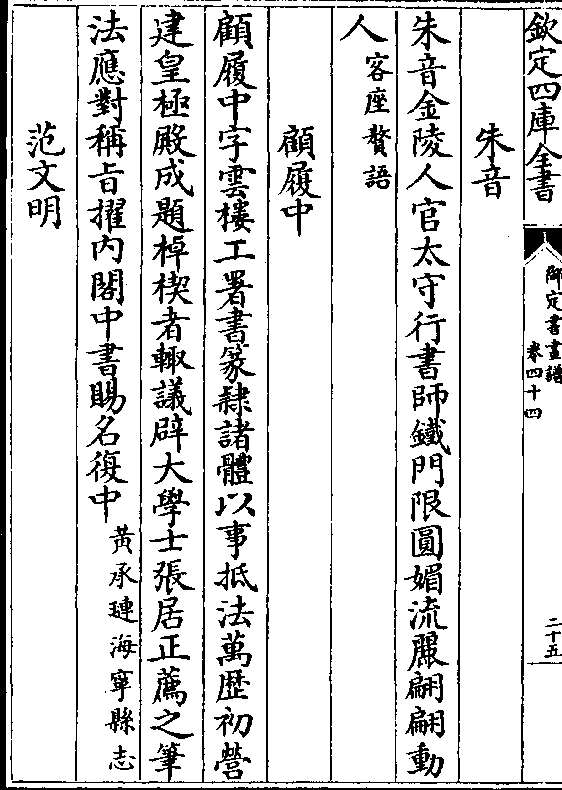 欽定四庫全書
御定書畫譜
卷四十四
二十五
朱音
朱音金陵人官太守行書師鐵門限圓媚流麗翩翩動
人客座贅語
顧履中
顧履中字雲樓工署書篆隸諸體以事抵法萬歴初營
建皇極殿成題棹楔者輙議辟大學士張居正薦之筆
法應對稱旨擢内閣中書賜名復中黃承璉海寧縣志
范文明